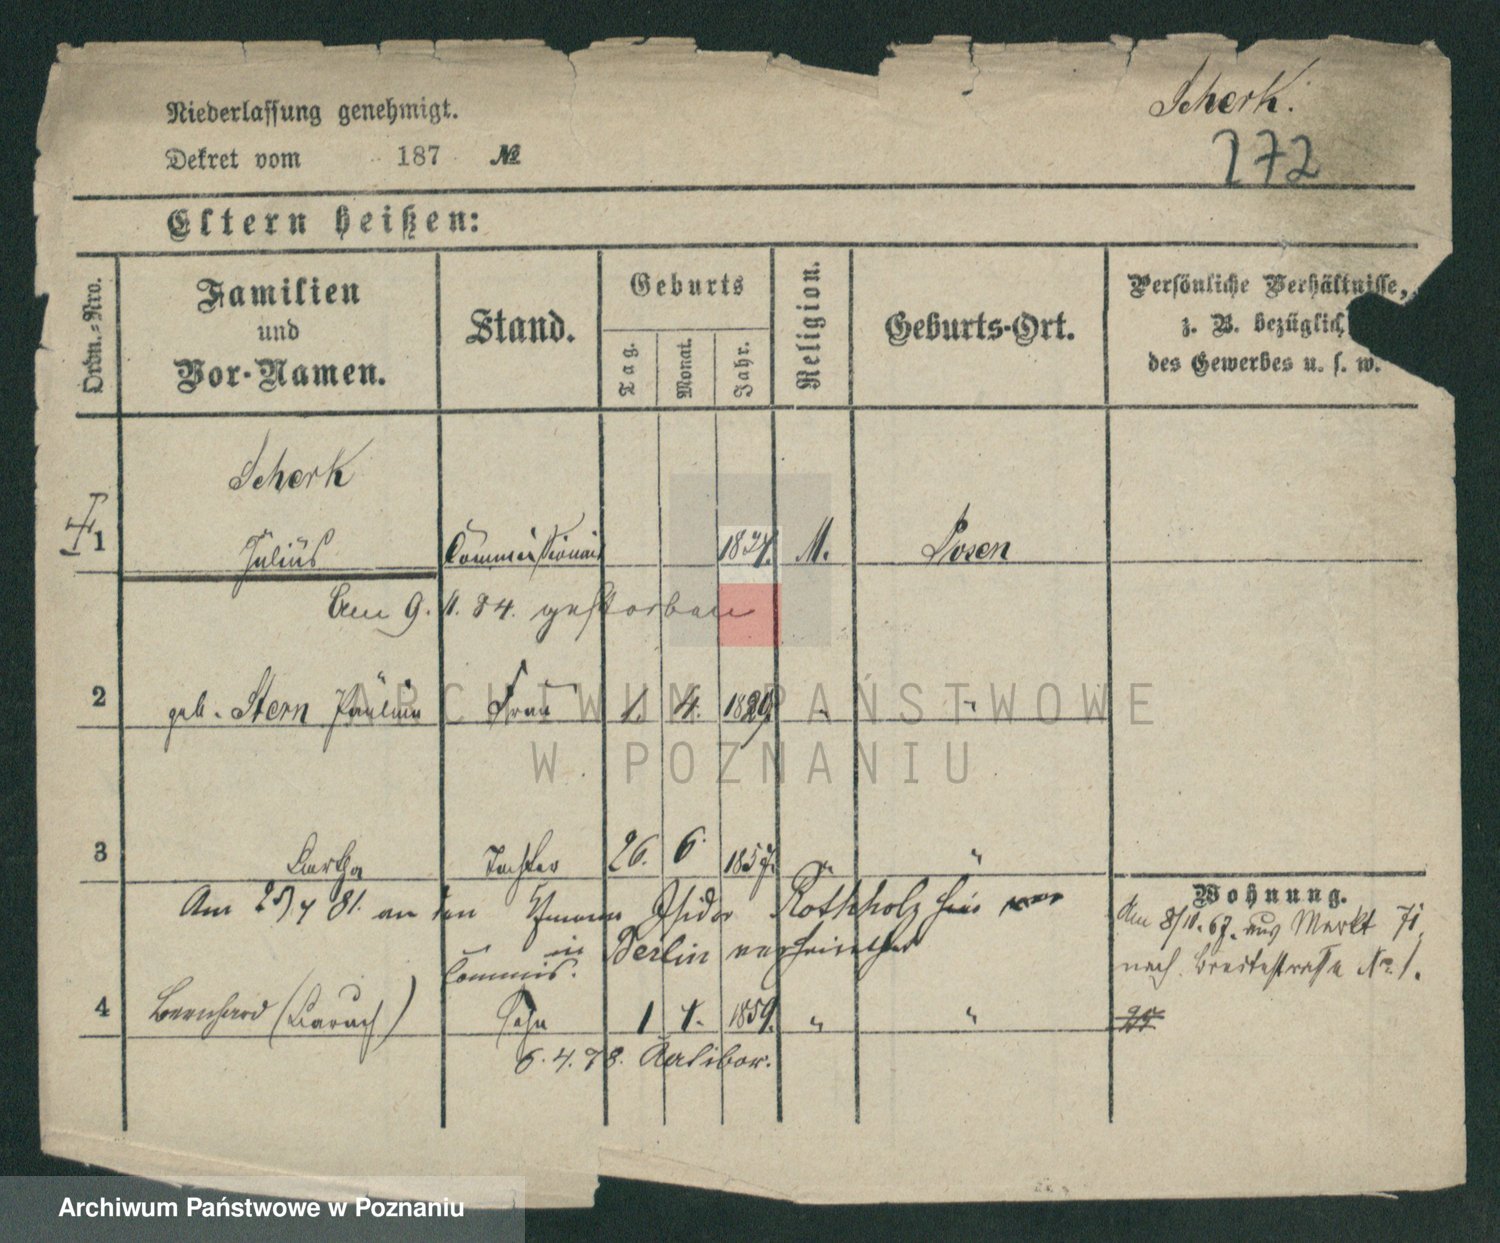 Scherk.
Niederlassung genehmigt.
272
Dekret vom 187 №
Eltern heißen:
Ordn.=Nro.
Familien
und
Vor=Namen.
Stand.
Geburts
Tag.
Monat.
Jahr.
Religion.
Geburts=Ort.
Persönliche Verhältnisse,
z. B. bezüglich
des Gewerbes u. s. w.
Scherk
1 Julius Commissionair 1827. M. Posen
Am 9. 11. 84. gestorben
2 geb. Stern Pauline Frau 1. 4. 1829. " "
3 Bertha Tochter 26. 6. 1857. " "
Am 25/4 81. an den Isidor Rothholz
in Berlin verheirathet
Wohnung.
Am 8/10. 67. aus Markt 71.
nach Breitestraße No. 1.
Commis.
4 Bernhard (Baruch) Sohn 1 4. 1859. " "
6. 4. 78. Ratibor.
ARCHIWUM PAŃSTWOWE
W POZNANIU
Archiwum Państwowe w Poznaniu